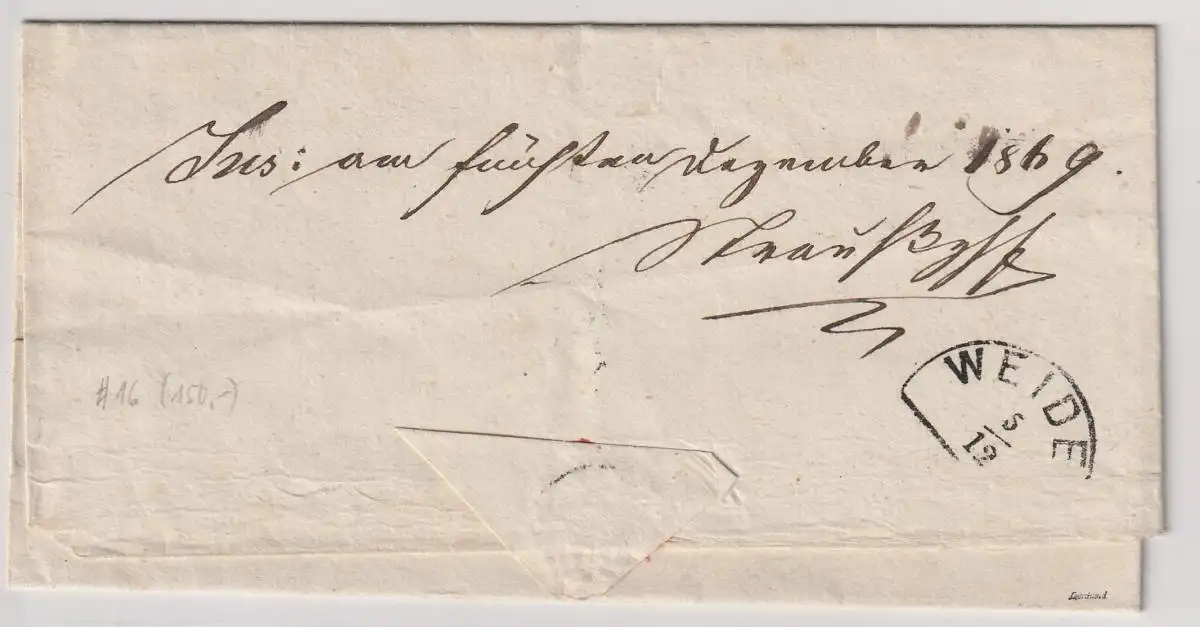 Ins: am fünften Dezember 1869.
#16 (150,-)
WEIDE
5/12